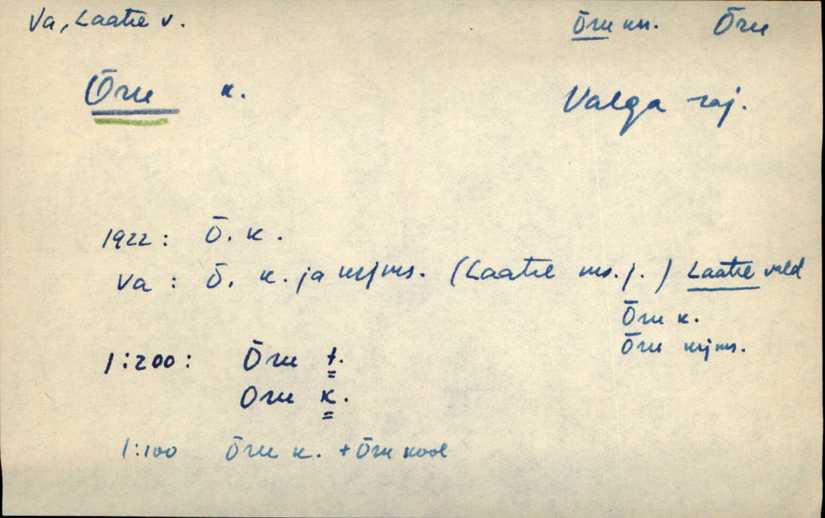 Va, Laatre v. Õru kn. Õru
Õru k. Valga raj.
1922: Õ. k.
Va: Õ. k. ja krjms. (Laatre ms. j.) Laatre vald
Õru k.
Õru krjms.
1:200: Õru t.
Oru k.
1:100 Õru k. + Õru kool